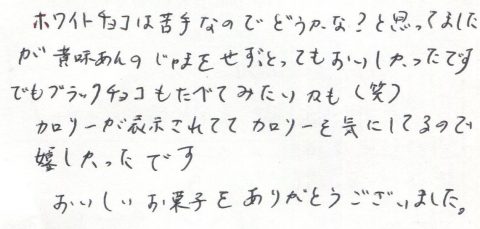 ホワイトチョコは苦手なのでどうかな？と思ってました
が黄味あんのじゃまをせずとってもおいしかったです
でもブラックチョコもたべてみたいカも（笑）
カロリーが表示されててカロリーを気にしてるので
嬉しかったです
おいしいお菓子をありがとうございました。